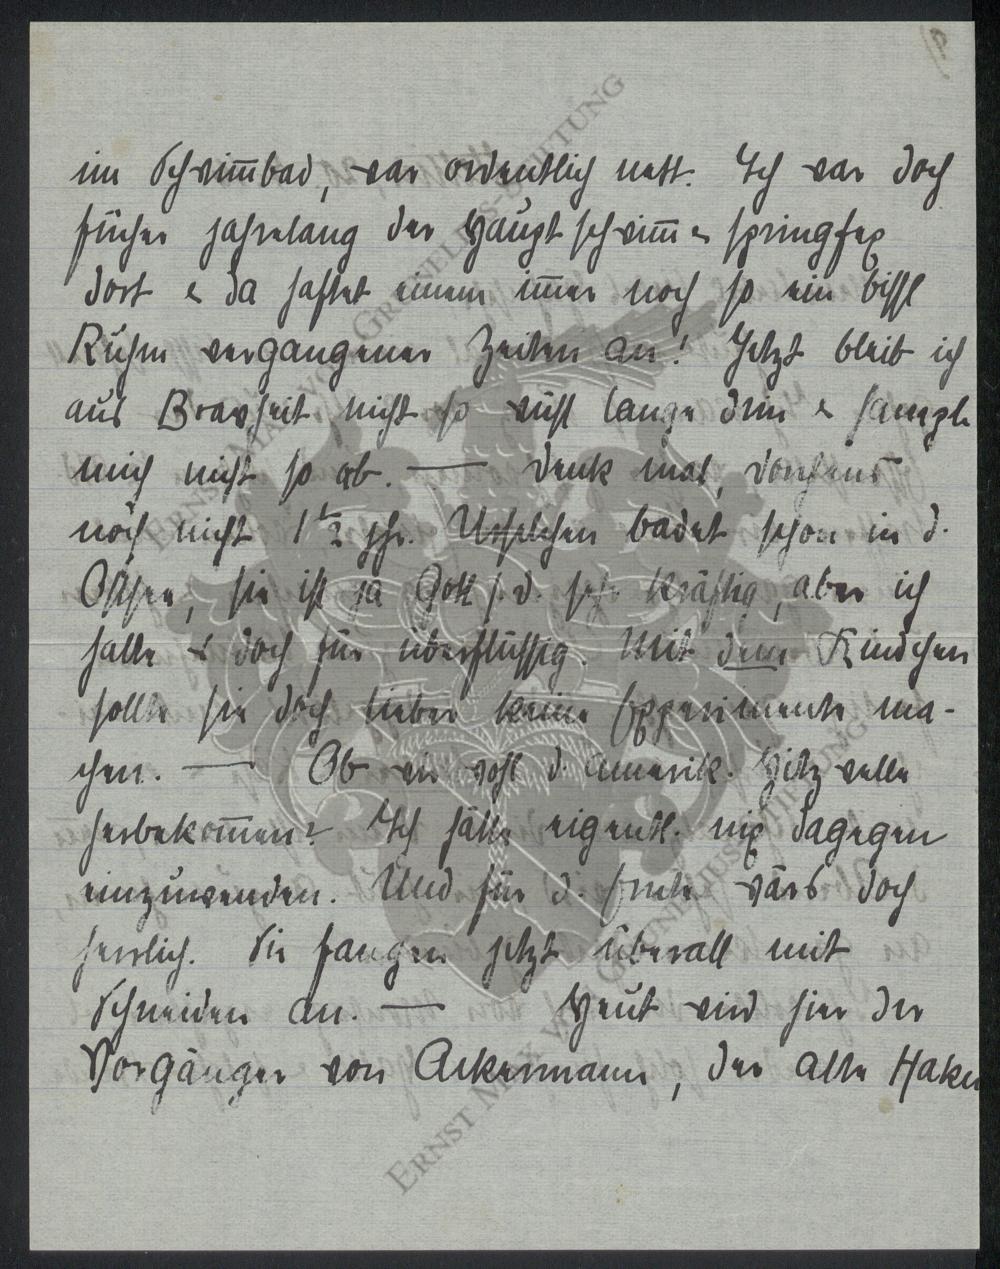 im Schwim̅bad, war ordentlich nett. Ich war doch
früher jahrelang der Hauptschwim̅ & springfex
dort & da haftet einem im̅er noch so ein bissl
Ruhm vergangener Zeiten an! Jetzt bleib ich
aus Bravheit nicht so lange drin &
mich nicht so ab. — Denk mal,
noch nicht 1 1/2 jhr. Urselchen badet schon in d.
Ostsee, sie ist ja Gott s. d. sehr kräftig, aber ich
halte es doch für überflüssig. Mit dem Kindchen
sollte sie doch lieber keine Experimente ma-
chen. — Ob wir wohl d. amerik. Hitzwelle
herbekom̅en? Ich hätte eigentl. nix dagegen
einzuwenden. Und für d. Ernte wärs doch
herrlich. Sie fangen jetzt überall mit
Schneiden an. — Heut wird hier der
Vorgänger von Ackermann, der alte Haken
ERNST MAX VON GRUNELIUS-STIFTUNG
ERNST MAX VON GRUNELIUS-STIFTUNG